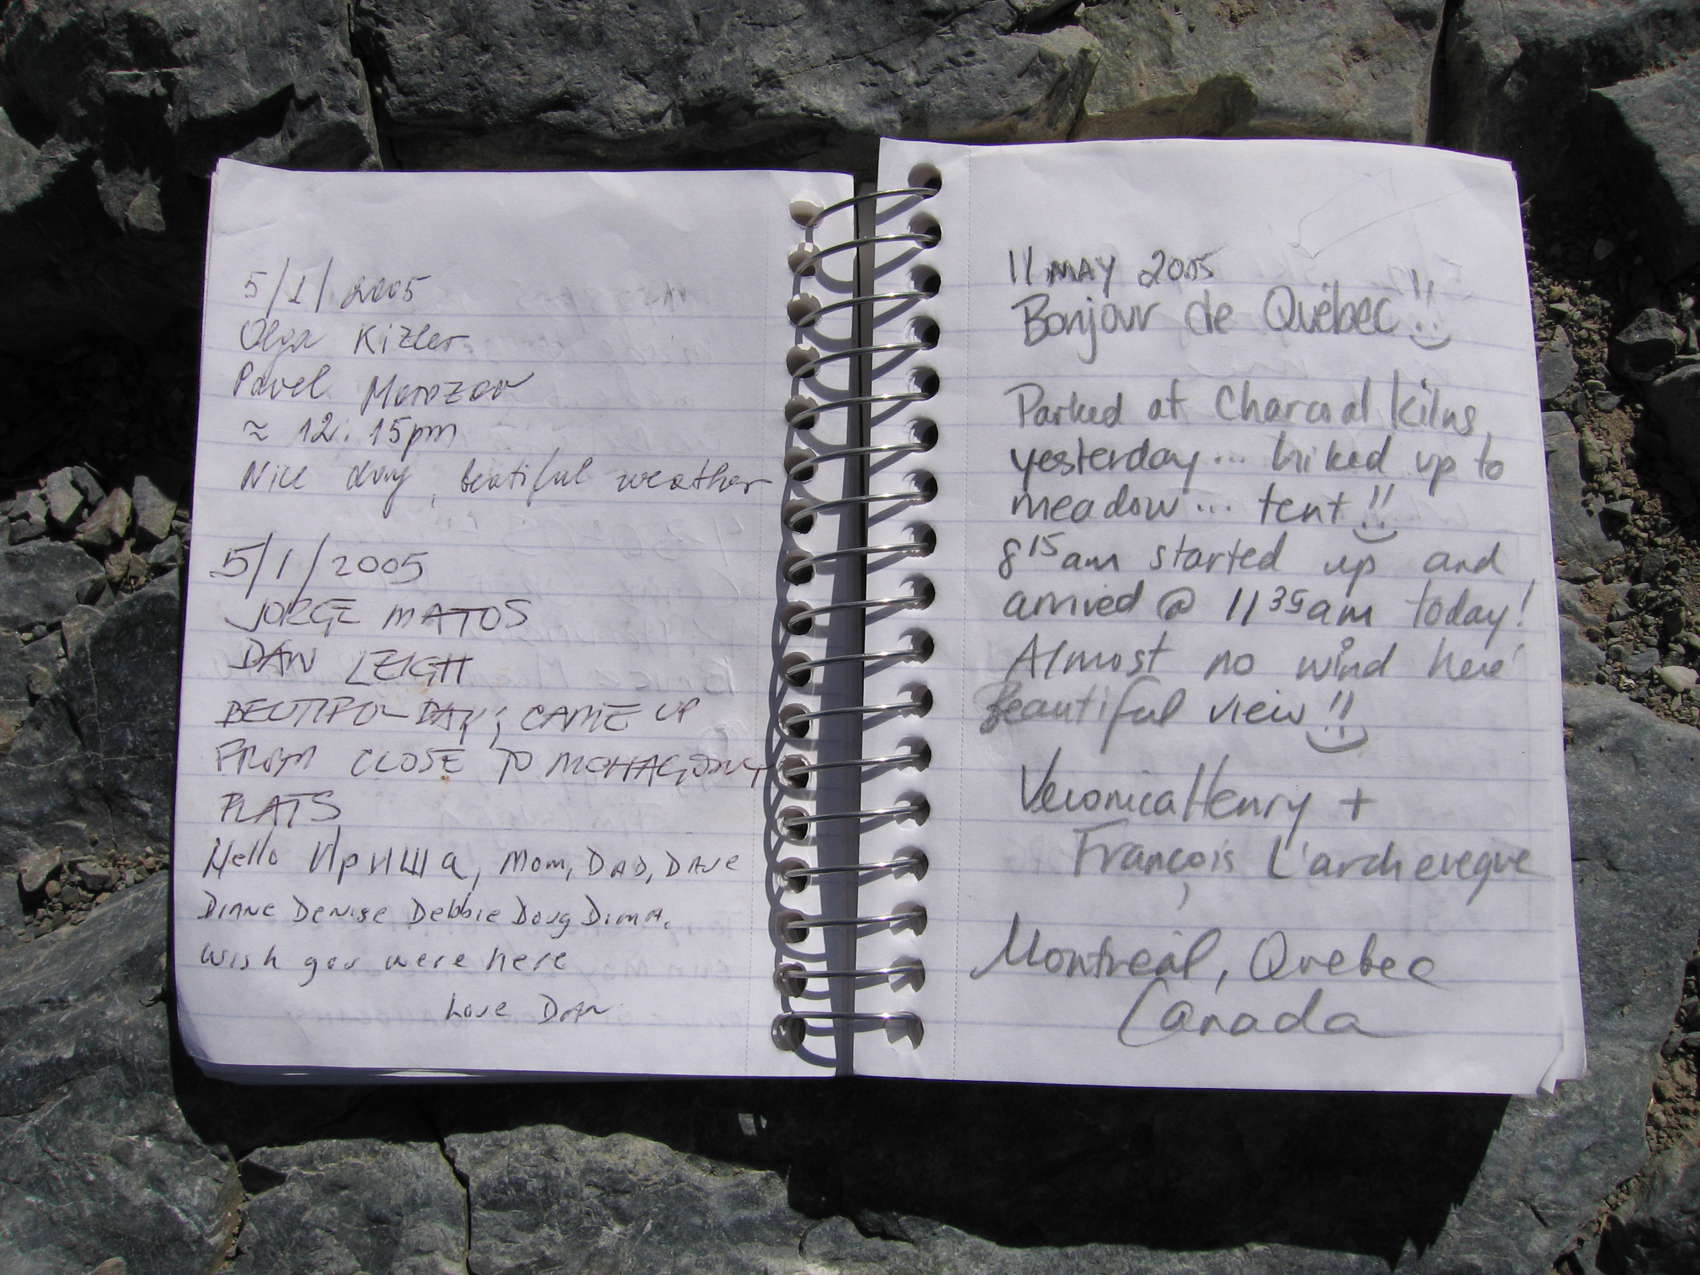 5/1/2005
Olga Kizler
Pavel Morozov
≈ 12:15pm
Nice day, beatiful weather
5/1/2005
JORGE MATOS
DAN LEIGH
DAY; CAME UP
FROM CLOSE TO MOHAGONY
FLATS
Hello Ириша, Mom, DAD, DAVE
DIANE Denise Debbie Doug Dima.
wish you were here
Love DAN
11 MAY 2005
Bonjour de Québec!!
Parked at Charcoal kilns
yesterday... hiked up to
meadow... tent!!
8 15 am started up and
arrived @ 11 35 am today!
Almost no wind here!
Beautiful view!!
Veronica Henry +
François L'archeveque
Montreal, Quebec
Canada